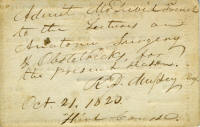 Admit
to the Lectures on
Anatomy Surgery
& Obstetricks for
the present season.
R. D. Mussey
Oct. 21. 1820.
First Course